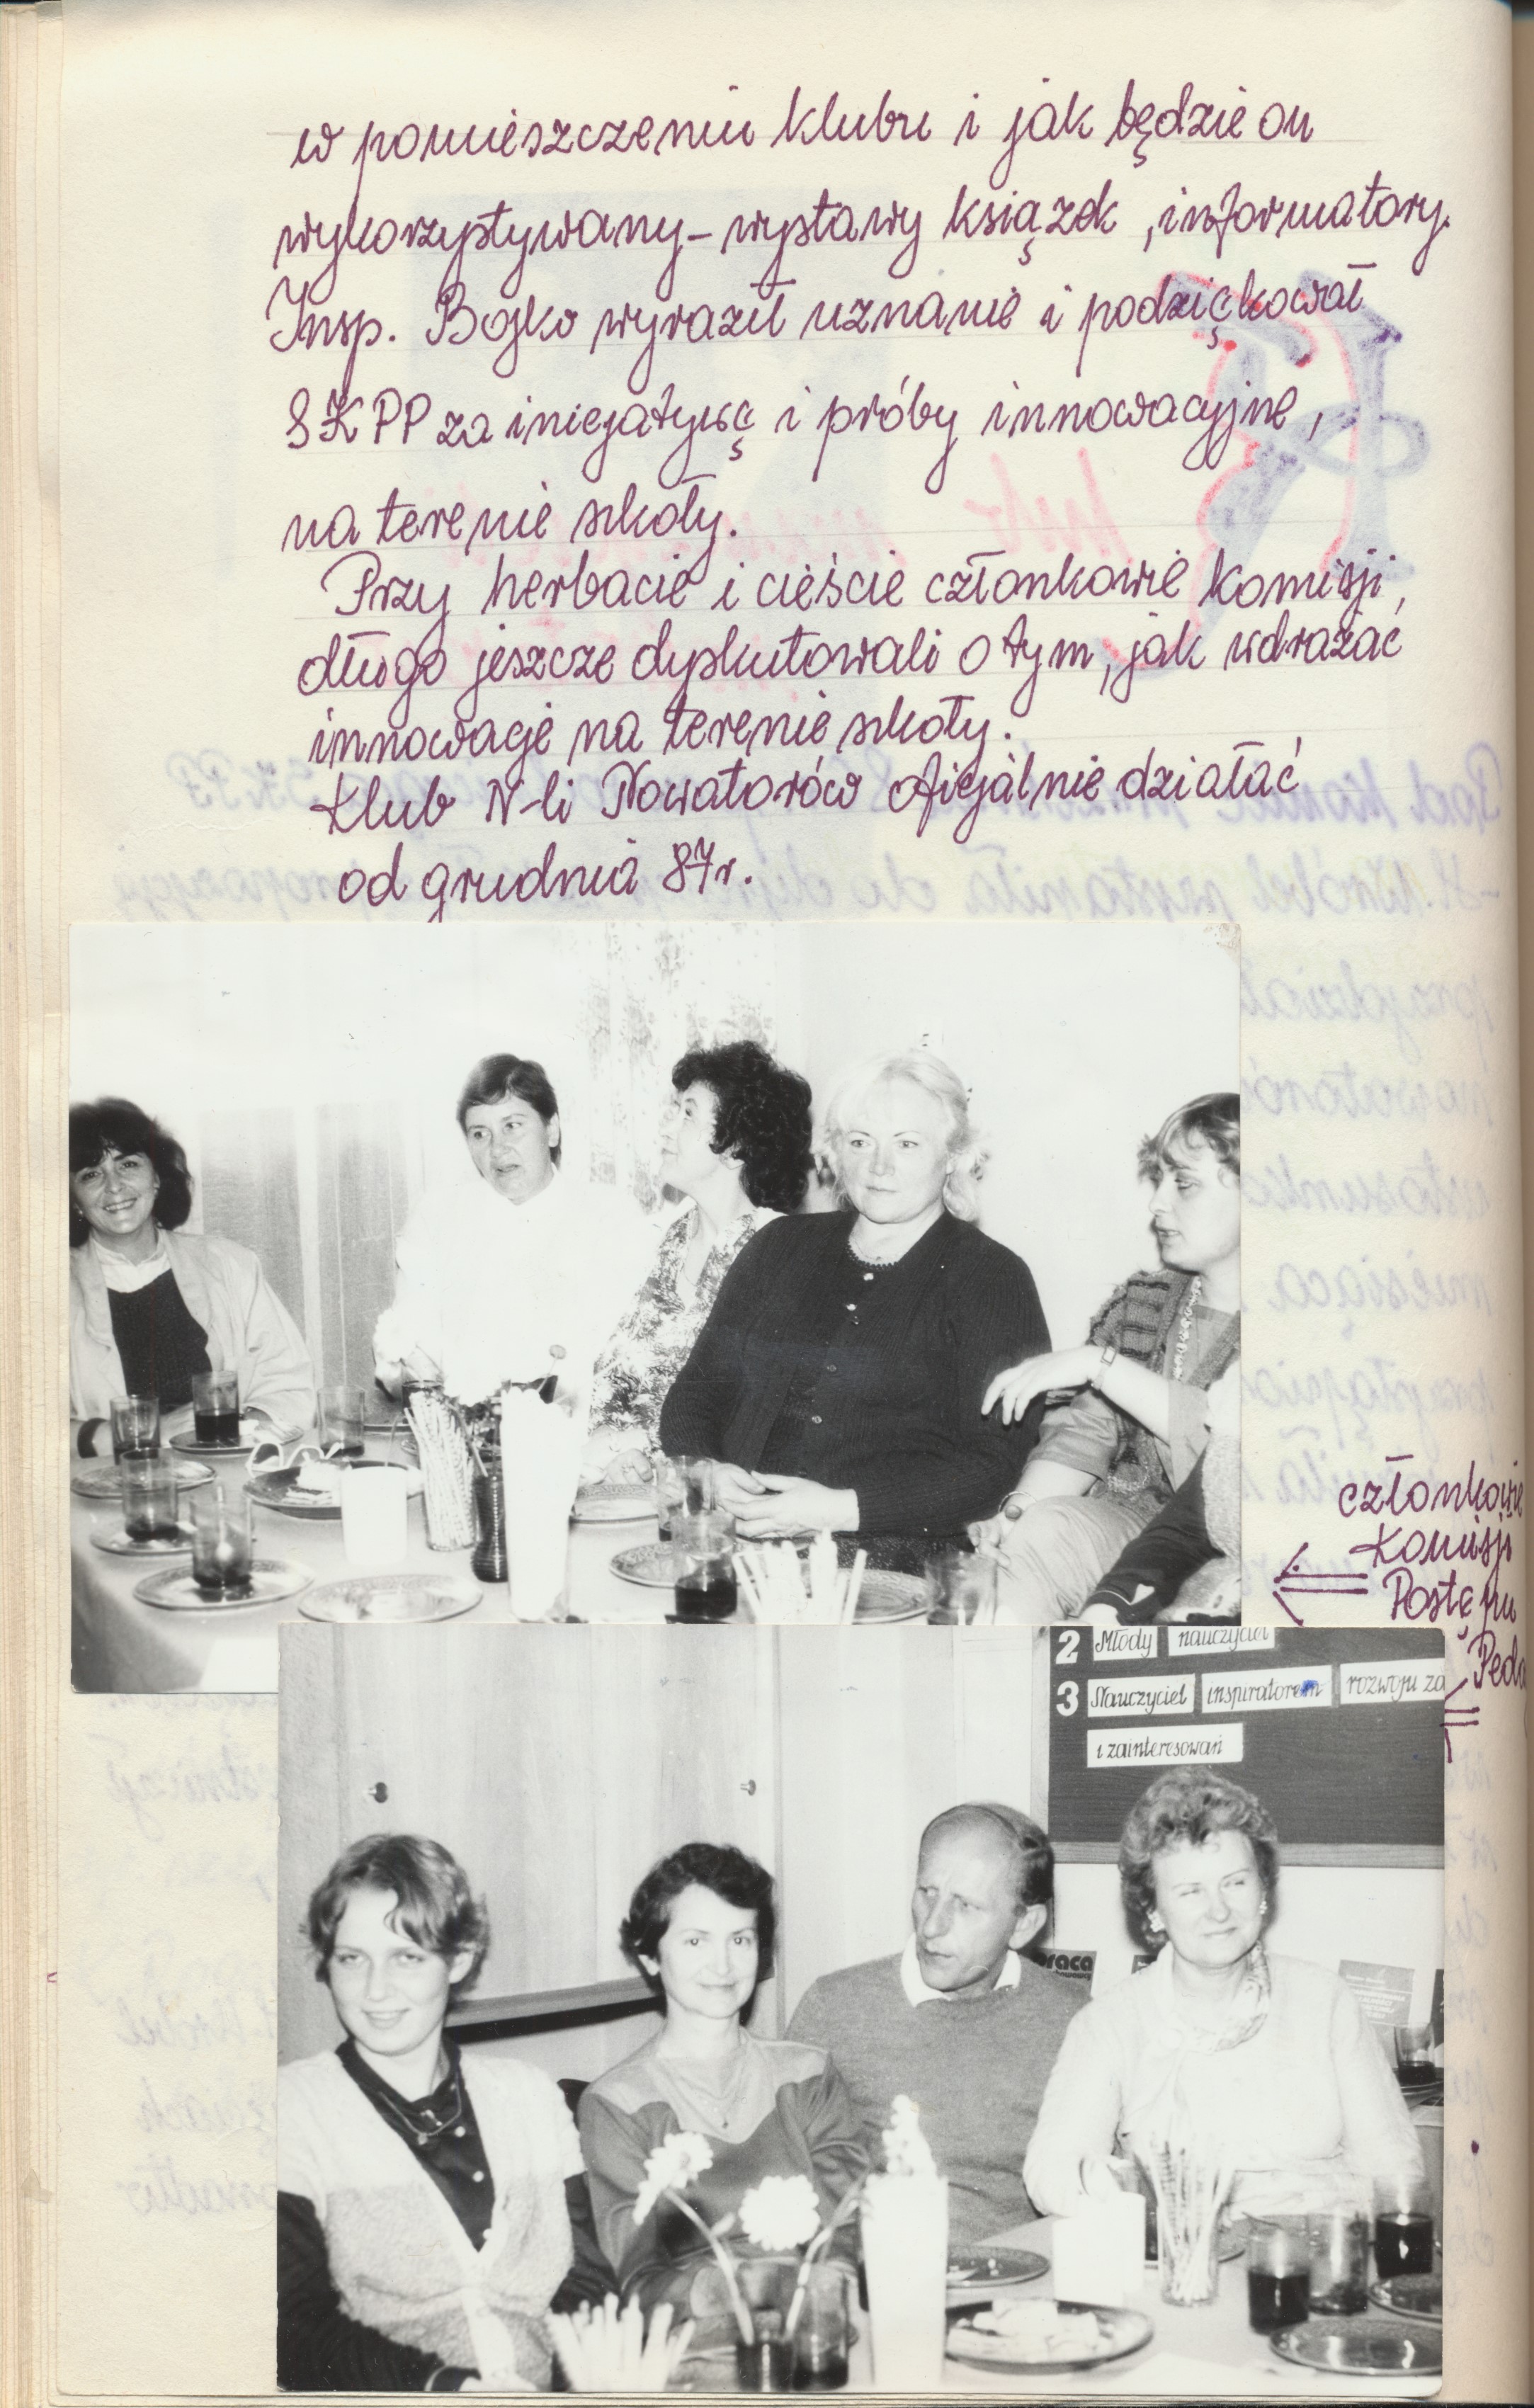 w pomieszczeniu klubu i jak będzie on
wykorzystywany - wystawy książek, informatory.
Insp. Bojko wyraził uznanie i podziękował
SKPP za inicjatywę i próby innowacyjne,
na terenie szkoły.
Przy herbacie i cieście członkowie komisji,
długo jeszcze dyskutowali o tym, jak wdrażać
innowacje na terenie szkoły.
Klub N-li Nowatorów oficjalnie działać
od grudnia 87r.
członkowie
Komisji
Postępu
Peda
2 Młody nauczyciel
3 Nauczyciel inspiratorem rozwoju za
i zainteresowań
praca